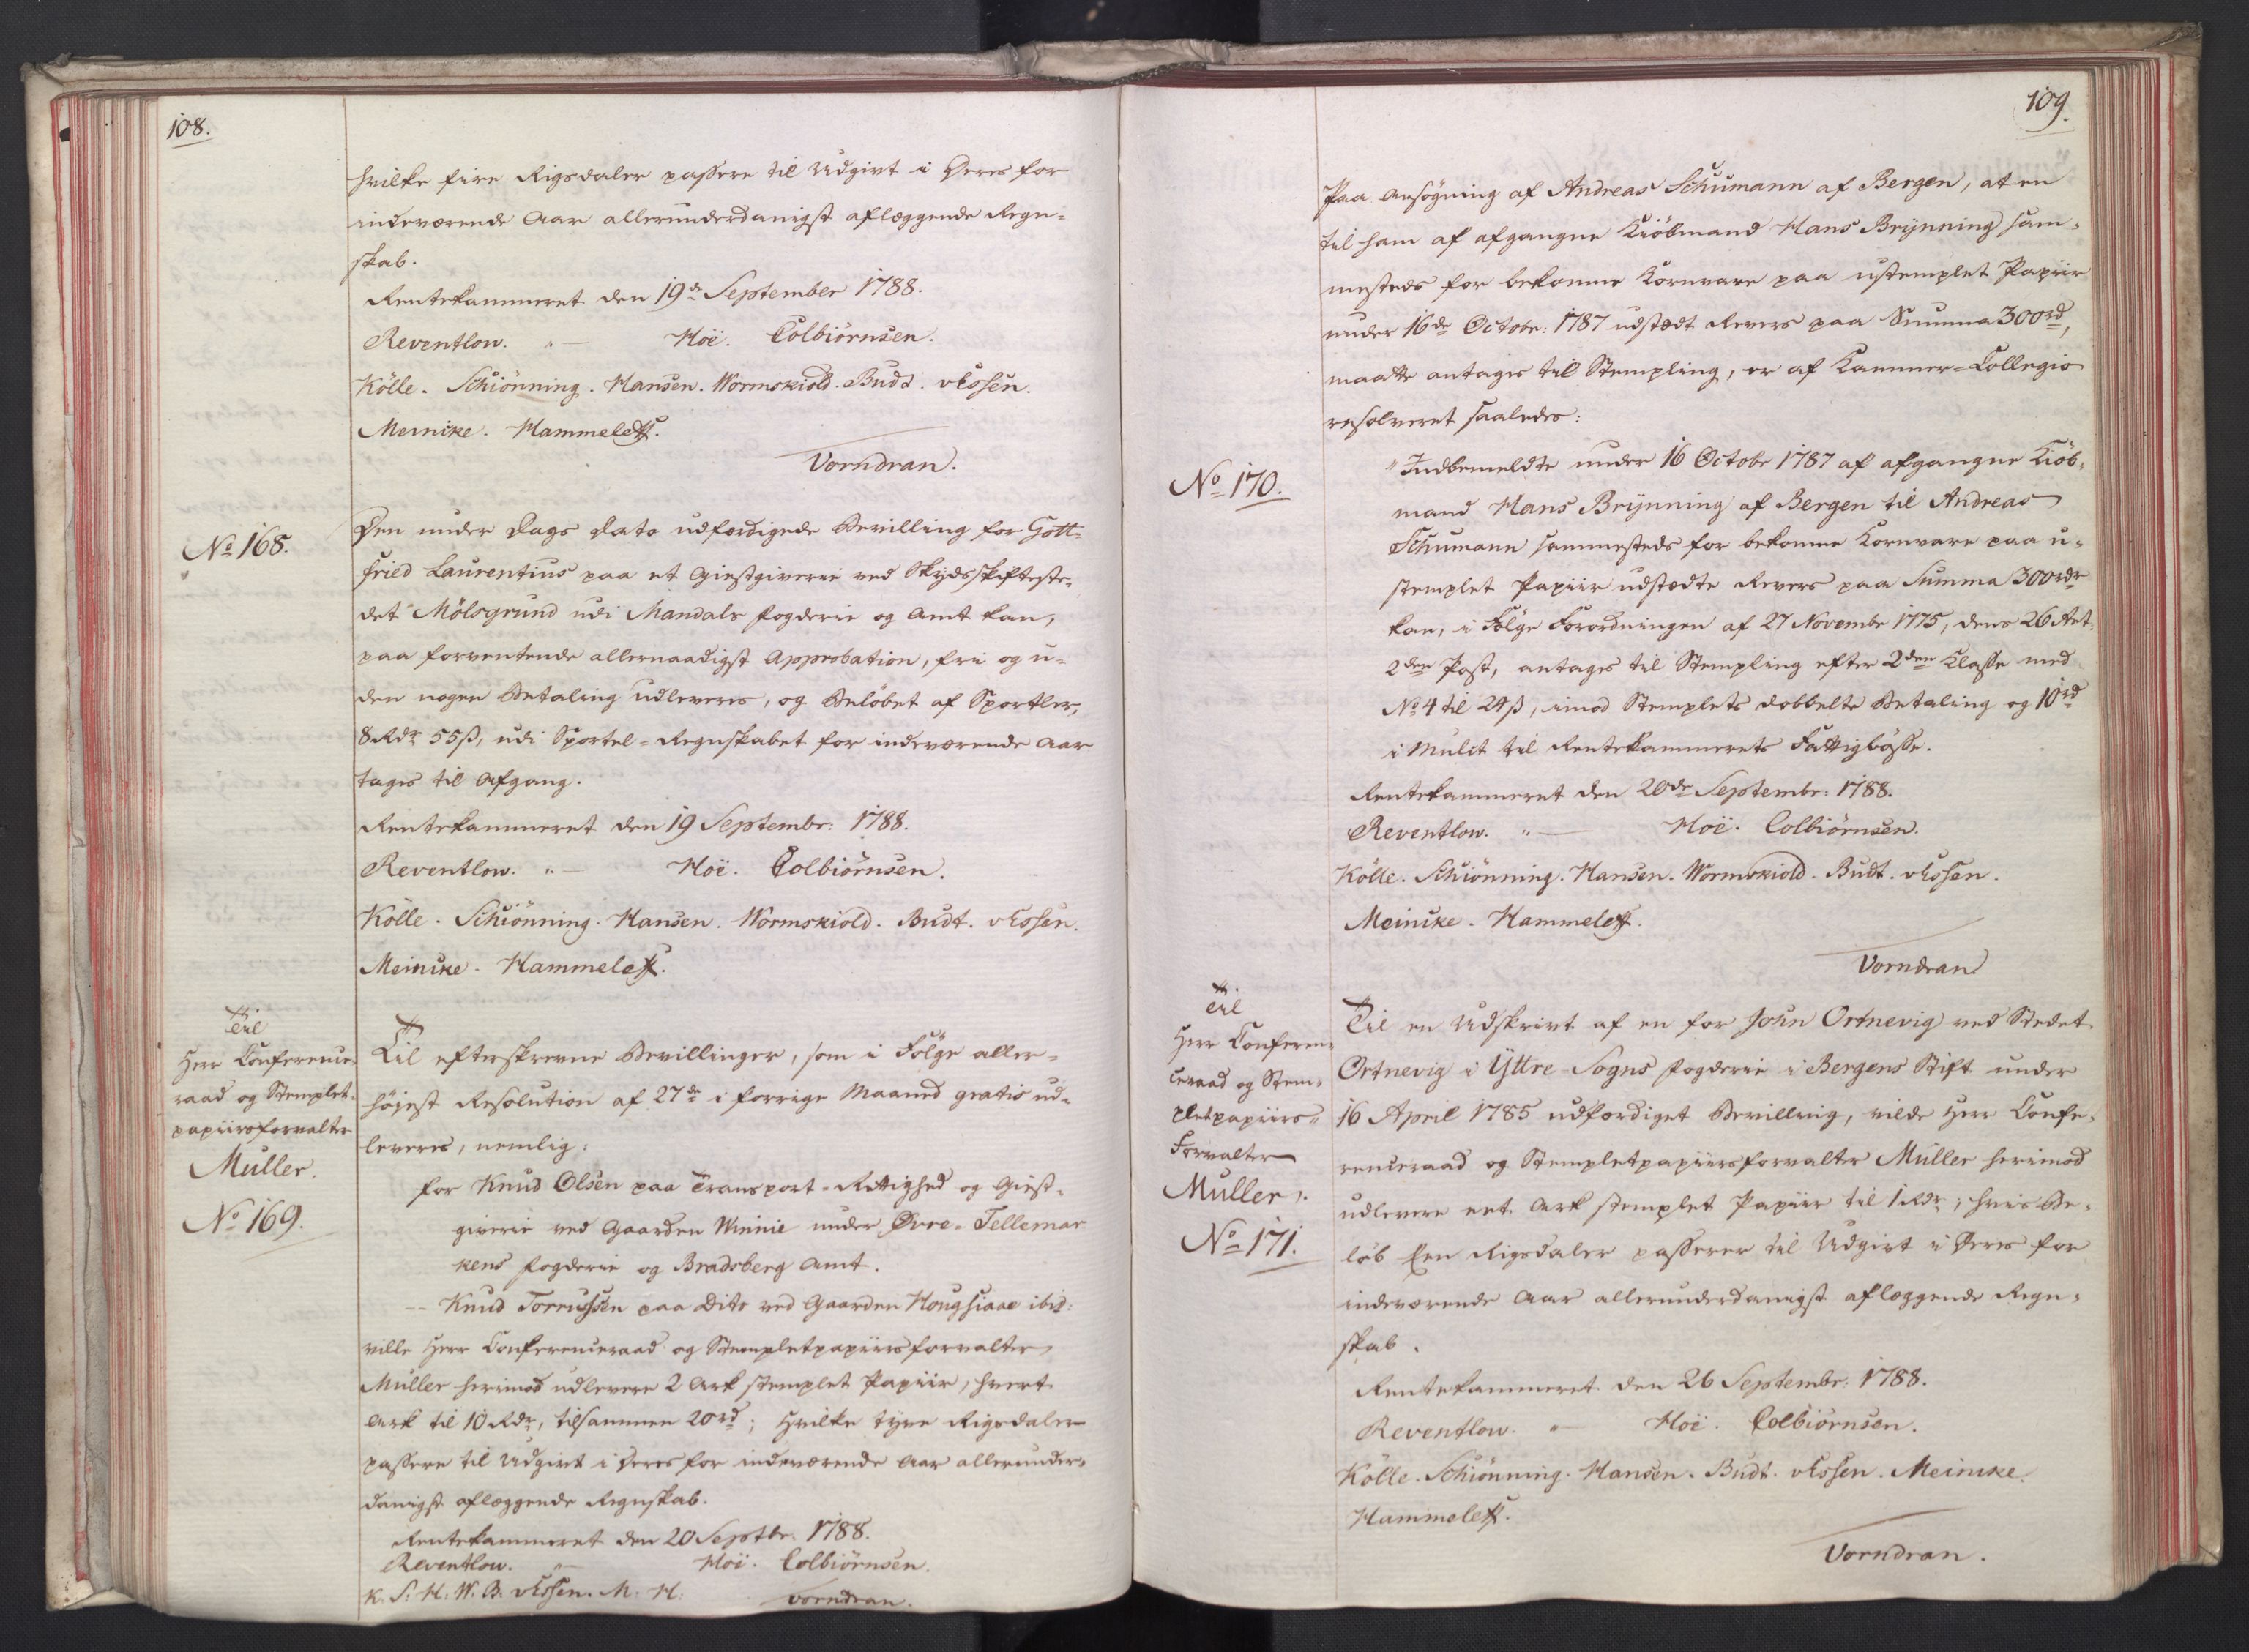 108.
hvilke fire Rigsdaler passere til Udgivt i Deres for
indeværende Aar allerunderdanigst aflæggende Regn-
skab.
Rentekammeret den 19de September 1788.
Reventlow. "— Hoë. Colbiörnsen.
Kölle. Schiönning. Hansen. Wormskiold. Budt. vEssen.
Meinike. Hammeleff.
Vorndran.
No 168.
Den under Dags Dato udfærdigede Bevilling for Gott-
fried Laurentius paa et Giestgiverie ved Skydsskifteste-
det Mölsgrund udi Mandals Fogderie og Amt kan,
paa forventende allernaadigst Approbation, fri og u-
den nogen Betaling udleveres, og Belöbet af Sportler,
8 Rdr 55ß, udi Sportel-Regnskabet for indeværende Aar
tages til Afgang.
Rentekammeret den 19 Septembr: 1788.
Reventlow. "— Hoë. Colbiörnsen.
Kölle. Schiönning. Hansen. Wormskiold. Budt. vEssen.
Meinike. Hammeleff.
Til
Herr Conference-
raad og Stemplet-
papiirsforvalter
Müller.
No 169.
Til efterskrevne Bevillinger, som i Fölge aller-
höjest Resolution af 27de i forrige Maaned gratis ud-
leveres, nemlig:
for Knud Olsen paa Transport-Rettighed og Giest-
giverie ved Gaarden Winnie under Øvre-Tellemar
kens Fogderie og Bradsberg Amt.
-- Knud Torrussen paa Dito ved Gaarden Hougsiaae ibid:
ville Herr Conferenceraad og Stempletpapiirsforvalter
Müller herimod udlevere 2 Ark stemplet Papiir, hvert
Ark til 10 Rdr, tilsammen 20rd; hvilke tyve Rigsdaler
passere til Udgivt i Deres for indeværende Aar allerunder-
danigst aflæggende Regnskab.
Rentekammeret den 20 Septbr. 1788.
Reventlow. "— Hoë. Colbiörnsen.
K. S. H. W. B. vEssen. M. H.
Vorndran.
109.
Paa Ansögning af Andreas Schumann af Bergen, at en
til ham af afgangne Kiöbmand Hans Brÿnning sam-
mesteds for bekomne Kornvare paa ustemplet Papiir
under 16de Octobr: 1787 udstædt Revers paa Summa 300rd,
maatte antages til Stempling, er af Kammer-Collegio
resolveret saaledes:
No 170.
"Indbemeldte under 16 Octobr 1787 af afgangne Kiöb-
mand Hans Brÿnning af Bergen til Andreas
Schumann sammesteds for bekomne Kornvare paa u-
stemplet Papiir udstædte Revers paa Summa 300rdr
kan, i Fölge Forordningen af 27 Novembr 1775, dens 26 Art.
2den Post, antages til Stempling efter 2den Classe med
No 4 til 24ß, imod Stemplets dobbelte Betaling og 10rd
i Mulct til Rentekammerets Fattigbösse.
Rentekammeret den 20de Septembr: 1788.
Reventlow. "— Hoë. Colbiörnsen.
Kölle. Schiönning. Hansen. Wormskiold. Budt. vEssen.
Meinike. Hammeleff.
Vorndran
Til
Herr Conferen-
ceraad og Stem-
pletpapiirs-
Forvalter
Müller.
No 171.
Til en Udskrivt af en for John Ortnevig ved Stedet
Ortnevig i Ÿttre-Sogns Fogderie i Bergens Stift under
16 April 1785 udfærdiget Bevilling, vilde Herr Confe-
renceraad og Stempletpapiirsforvalter Müller herimod
udlevere eet Ark stemplet Papiir til 1 Rdr; hvis Be-
löb Een Rigsdaler passerer til Udgivt i Deres for
indeværende Aar allerunderdanigst aflæggende Regn-
skab.
Rentekammeret den 26 Septembr: 1788.
Reventlow. "— Hoë. Colbiörnsen.
Kölle. Schiönning. Hansen. Budt. vEssen. Meinike.
Hammeleff.
Vorndran.